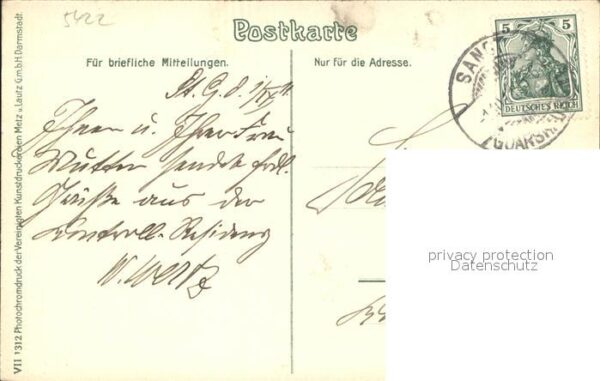 5422
Postkarte
Für briefliche Mitteilungen.
Nur für die Adresse.
5 5
DEUTSCHES REICH
SANCT
GOARSH
St. G. d.
Ihnen u. Ihrer Frau
Mutter sendet frdl.
Grüße aus der
Controll-Residenz
W. Wertz
privacy protection
Datenschutz
VII 1312 Photochromdruck der Vereinigten Kunstdruckereien Metz u. Lautz G.m.b.H. Darmstadt.